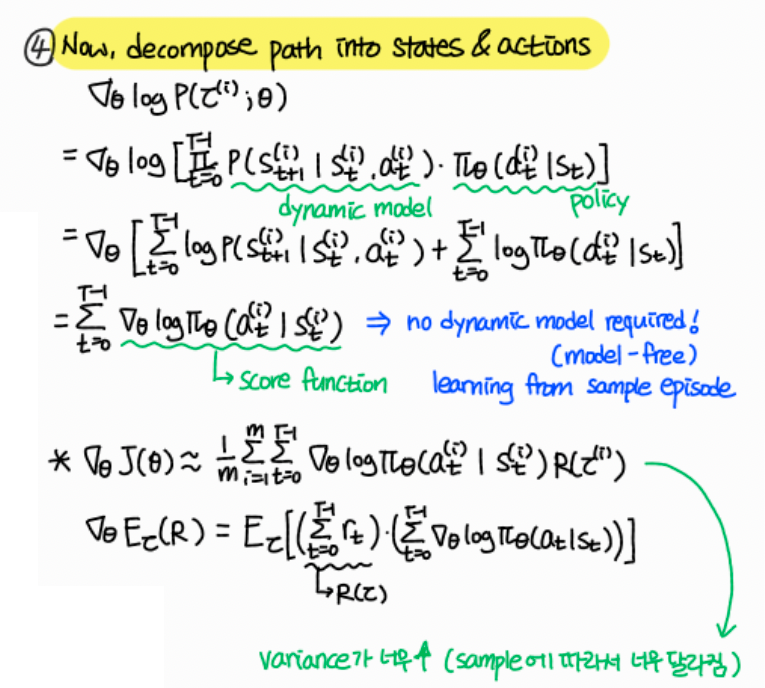 ④ Now, decompose path into states & actions
∇θ log P(τ⁽ⁱ⁾; θ)
= ∇θ log [∏_{t=0}^{T-1} P(s_{t+1}⁽ⁱ⁾ | s_t⁽ⁱ⁾, a_t⁽ⁱ⁾) · πθ(a_t⁽ⁱ⁾ | s_t)]
dynamic model policy
= ∇θ [∑_{t=0}^{T-1} log P(s_{t+1}⁽ⁱ⁾ | s_t⁽ⁱ⁾, a_t⁽ⁱ⁾) + ∑_{t=0}^{T-1} log πθ(a_t⁽ⁱ⁾ | s_t)]
= ∑_{t=0}^{T-1} ∇θ log πθ(a_t⁽ⁱ⁾ | s_t⁽ⁱ⁾) ⇒ no dynamic model required!
(model-free)
↳ score function learning from sample episode
* ∇θ J(θ) ≈ 1/m ∑_{i=1}^{m} ∑_{t=0}^{T-1} ∇θ log πθ(a_t⁽ⁱ⁾ | s_t⁽ⁱ⁾) R(τ⁽ⁱ⁾)
∇θ E_τ(R) = E_τ[(∑_{t=0}^{T-1} r_t)·(∑_{t=0}^{T-1} ∇θ log πθ(a_t|s_t))]
↳ R(τ)
variance가 너무↑ (sample에 따라서 너무 달라짐)